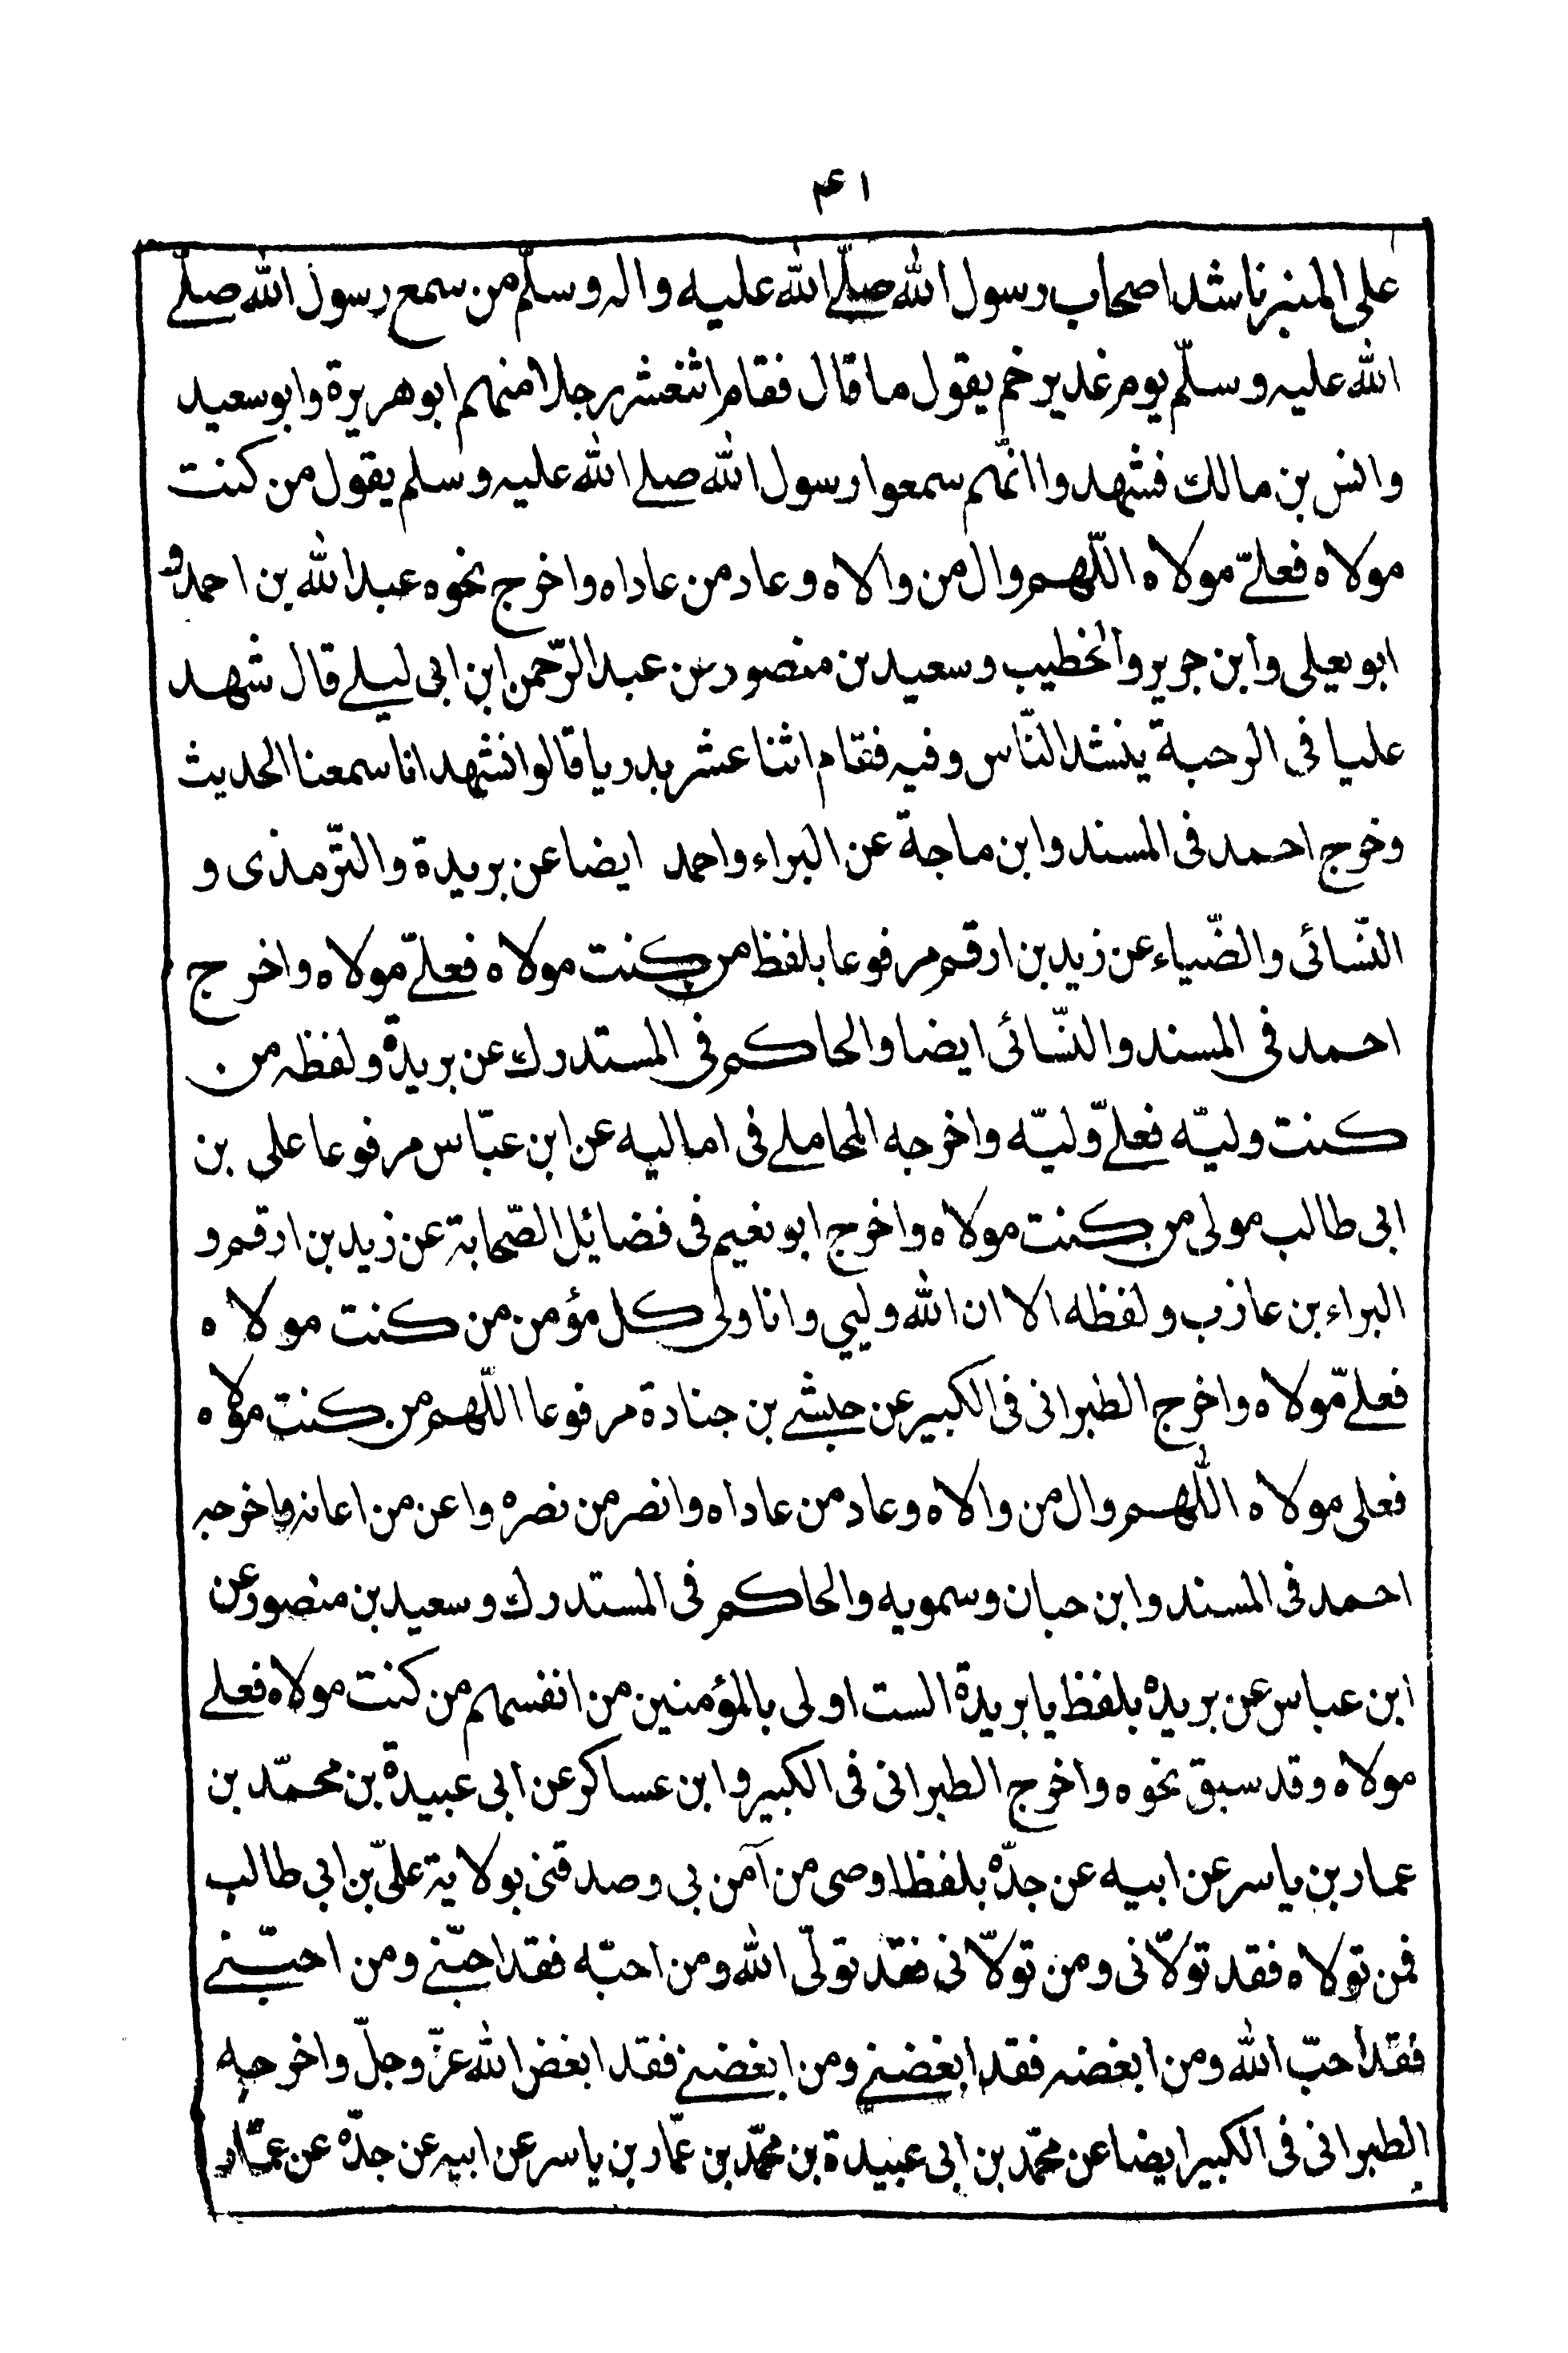 ۴۱
على المنبر ناشد اصحاب رسول الله صلّے الله عليه واله وسلّم من سمع رسول الله صلّے
الله عليه وسلّم يوم غدير خم يقول ما قال فقام اثنعشر رجلا منهم ابو هريرة وابو سعيد
وانس بن مالك فشهدوا انّهم سمعوا رسول الله صلے الله عليه وسلم يقول من كنت
مولاه فعلىّ مولاه اللّهم وال من والاه وعاد من عاداه واخرج نحوه عبد الله بن احمد و
ابو يعلى وابن جرير والخطيب وسعيد بن منصور عن عبد الرّحمن ابن ابى ليلے قال شهد
عليا فى الرحبة ينشد النّاس وفيه فقام اثنا عشر بدريا قالوا نشهد انا سمعنا الحديث
وخرج احمد فى المسند وابن ماجة عن البراء واحمد ايضا عن بريدة والتّرمذى و
النّسائى والضّياء عن زيد بن ارقم مرفوعا بلفظ من كنت مولاه فعلىّ مولاه واخرج
احمد فى المسند والنّسائى ايضا والحاكم فى المستدرك عن بريدة ولفظه من
كنت وليّه فعلىّ وليّه واخرجه المحاملے فى اماليه عن ابن عبّاس مرفوعا على بن
ابى طالب مولى من كنت مولاه واخرج ابو نعيم فى فضائل الصّحابة عن زيد بن ارقم و
البراء بن عازب ولفظه الا ان الله وليي وانا ولى كل مؤمن من كنت مولاه
فعلىّ مولاه واخرج الطبرانى فى الكبير عن حبشے بن جنادة مرفوعا اللّهم من كنت مولاه
فعلى مولاه اللّهم وال من والاه وعاد من عاداه وانصر من نصره واعن من اعانه واخرجه
احمد فى المسند وابن حبان وسمويه والحاكم فى المستدرك وسعيد بن منصور عن
ابن عباس عن بريدة بلفظ يا بريدة الست اولى بالمؤمنين من انفسهم من كنت مولاه فعلے
مولاه وقد سبق نحوه واخرج الطبرانى فى الكبير وابن عساكر عن ابى عبيدة بن محمّد بن
عمار بن ياسر عن ابيه عن جدّه بلفظ اوصى من آمن بي وصدقنى بولاية علىّ بن ابي طالب
فمن تولاه فقد تولّانى ومن تولّانى فقد تولّى الله ومن احبّه فقد احبّنے ومن احبّنے
فقد احبّ الله ومن ابغضه فقد ابغضنے ومن ابغضنے فقد ابغض الله عزّ وجلّ واخرجه
الطبرانى فى الكبير ايضا عن محمّد بن ابى عبيدة بن محمّد بن عمّار بن ياسر عن ابيه عن جدّه عن عمّار